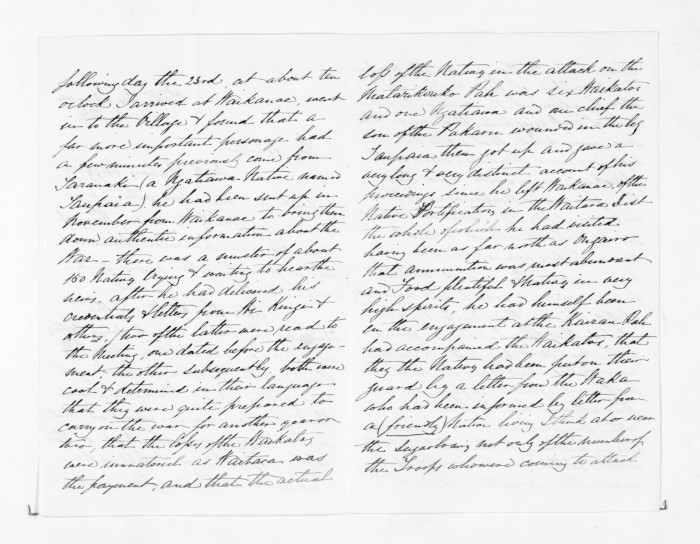 following day the 23rd at about ten
oclock I arrived at Waikanae, went
in to the Village & found that a
far more important personage had
a few minutes previously come from
Taranaki (a Ngatiawa Native named
Taupaia) he had been sent up in
November from Waikanae to bring them
down authentic information about the
War - there was a muster of about
150 Natives crying & waiting to hear the
news, after he had delivered his
credentials, & letters from Wi Kingi &
others, two of the latter were read to
the Meeting, one dated before the engage-
ment, the other subsequently, both were
cool & determined in their language
that they were quite prepared to
carry on the war for another year or
two, that the loss of the Waikatos
were immaterial as Waitara was
the payment, and that the actual
loss of the Natives in the attack on the
Matarikoriko Pah was six Waikatos
and one Ngatiawa and one chief the
son of the Pakaru wounded in the leg
Taupaia then got up and gave a
very long & very distinct account of his
proceedings since he left Waikanae, of the
Native Fortifications in the Waitara Dist
the whole of which he had visited
having been as far north as
that ammunition was most abundant
and Food plentiful & Natives in very
high spirits, he had himself been
in the engagement at the Kairau Pah
had accompanied the Waikatos, that
they the Natives had been put on their
guard by a letter from the Waka
who had been informed by letter from
a (friendly) Native living I think at or near
the Sugarloaves not only of the number of
the Troops who were coming to attack